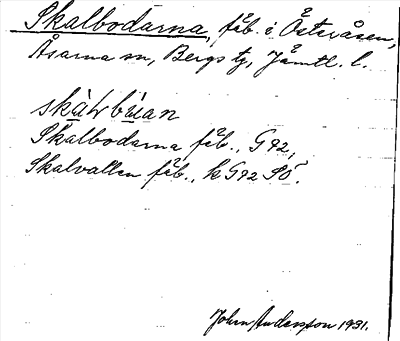 Skalbodarna, fäb. i Österåsen,
Åsarna sn, Bergs tg, Jämtl. l.
skàLbùan
Skalbodarna fäb., G92,
Skalvallen fäb., k G92 SÖ.
John Andersson 1931.